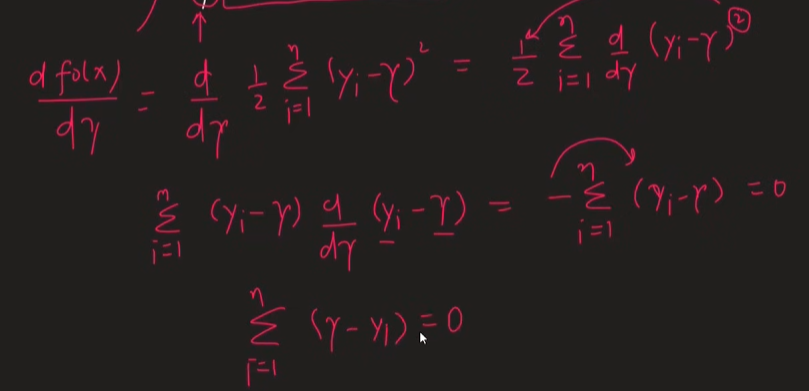 d f₀(x)/dγ = d/dγ 1/2 Σ_{i=1}^{n} (yᵢ-γ)² = 1/2 Σ_{i=1}^{n} d/dγ (yᵢ-γ)²
Σ_{i=1}^{n} (yᵢ-γ) d/dγ (yᵢ-γ) = -Σ_{i=1}^{n} (yᵢ-γ) = 0
Σ_{i=1}^{n} (γ-yᵢ) = 0